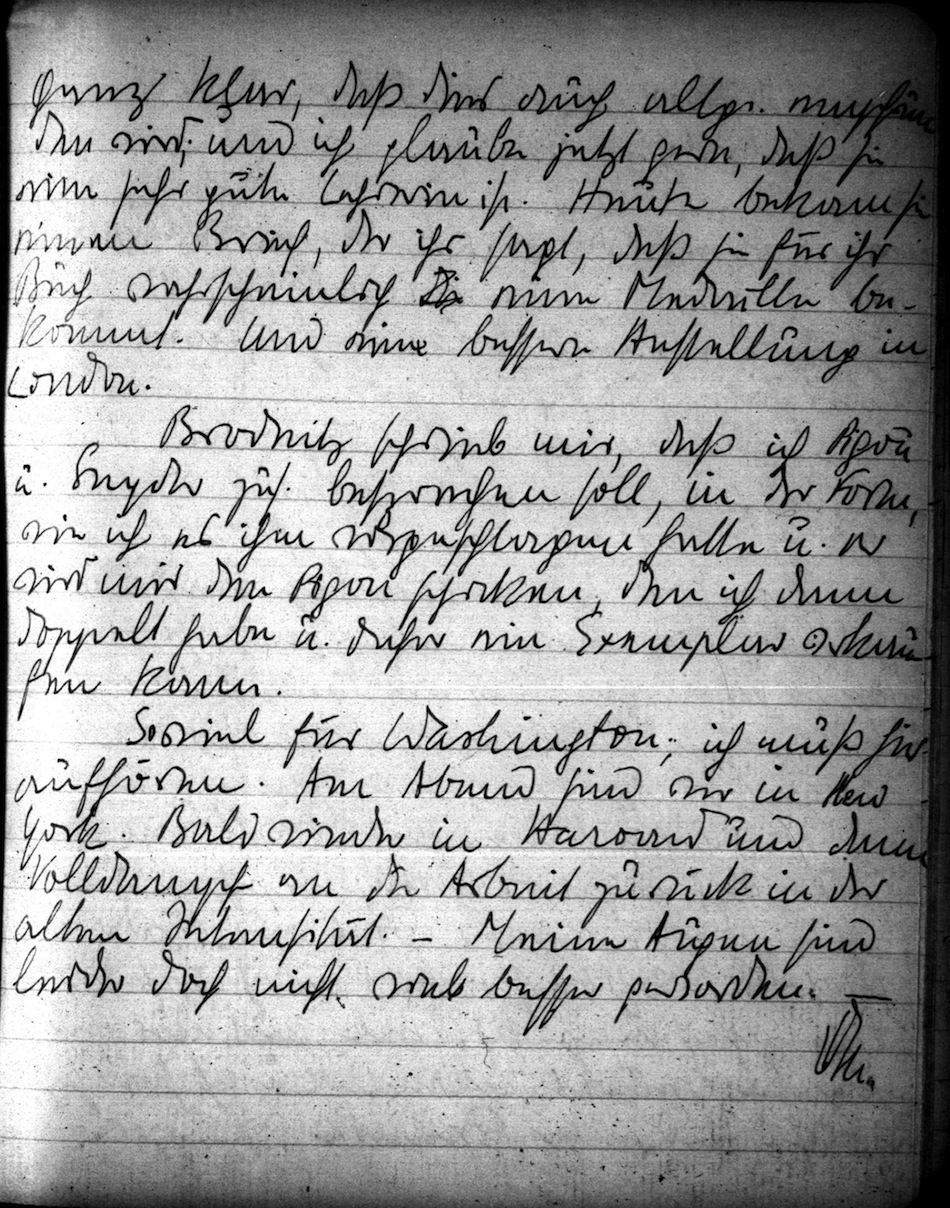 Ganz klar, daß dies auch allg. empfun
den wird; und ich glaube jetzt gern, daß sie
eine sehr gute Lehrerin ist. Heute bekam sie
einen Brief, der ihr sagt, daß sie für ihr
Buch wahrscheinlich eine Medaille be-
kommt. Und eine bessere Anstellung in
London.
Brodnitz schrieb mir, daß ich Pigou
u. Snyder zus. besprechen soll, in der Form,
wie ich es ihm vorgeschlagen hatte u. er
wird mir den Pigou schicken, den ich dann
doppelt habe u. daher ein Exemplar verkau-
fen kann.
Soviel für Washington; ich muß hier
aufhören. Am Abend sind wir in New
York. Bald wieder in Harvard und dann
Volldampf an die Arbeit zurück in der
alten Intensität. – Meine Augen sind
leider doch nicht viel besser geworden. —